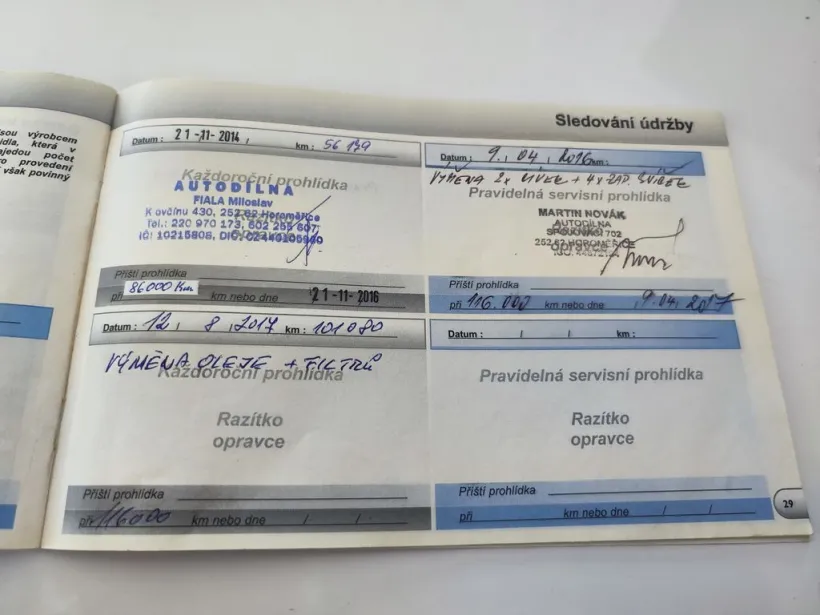 sou výrobcem
idla, která v
ajedou počet
ro provedení
však povinný
Sledování údržby
Datum : 21 -11- 2014, km : 56 179
Každoroční prohlídka
AUTODÍLNA
FIALA Miloslav
K ovčínu 430, 252 62 Horoměřice
Tel.: 220 970 173, 602 255 607
IČ: 10215808, DIČ:
Razítko
opravce
Příští prohlídka
při 86000 Km km nebo dne 21 -11- 2016
Datum : 9. 04, 2016 km :
VÝMĚNA 2x + 4x ZAP. SVÍČEK
Pravidelná servisní prohlídka
MARTIN NOVÁK
AUTODÍLNA
SPOJOVACÍ 702
252 62 HOROMĚŘICE
Razítko
opravce
Příští prohlídka
při 116.000 km nebo dne 9.04, 2017
Datum : 12, 8, 2017 km : 101080
VÝMĚNA OLEJE + FILTRŮ
Každoroční prohlídka
Razítko
opravce
Příští prohlídka
při 116000 km nebo dne / /
Datum : / / km :
Pravidelná servisní prohlídka
Razítko
opravce
Příští prohlídka
při km nebo dne / /
29